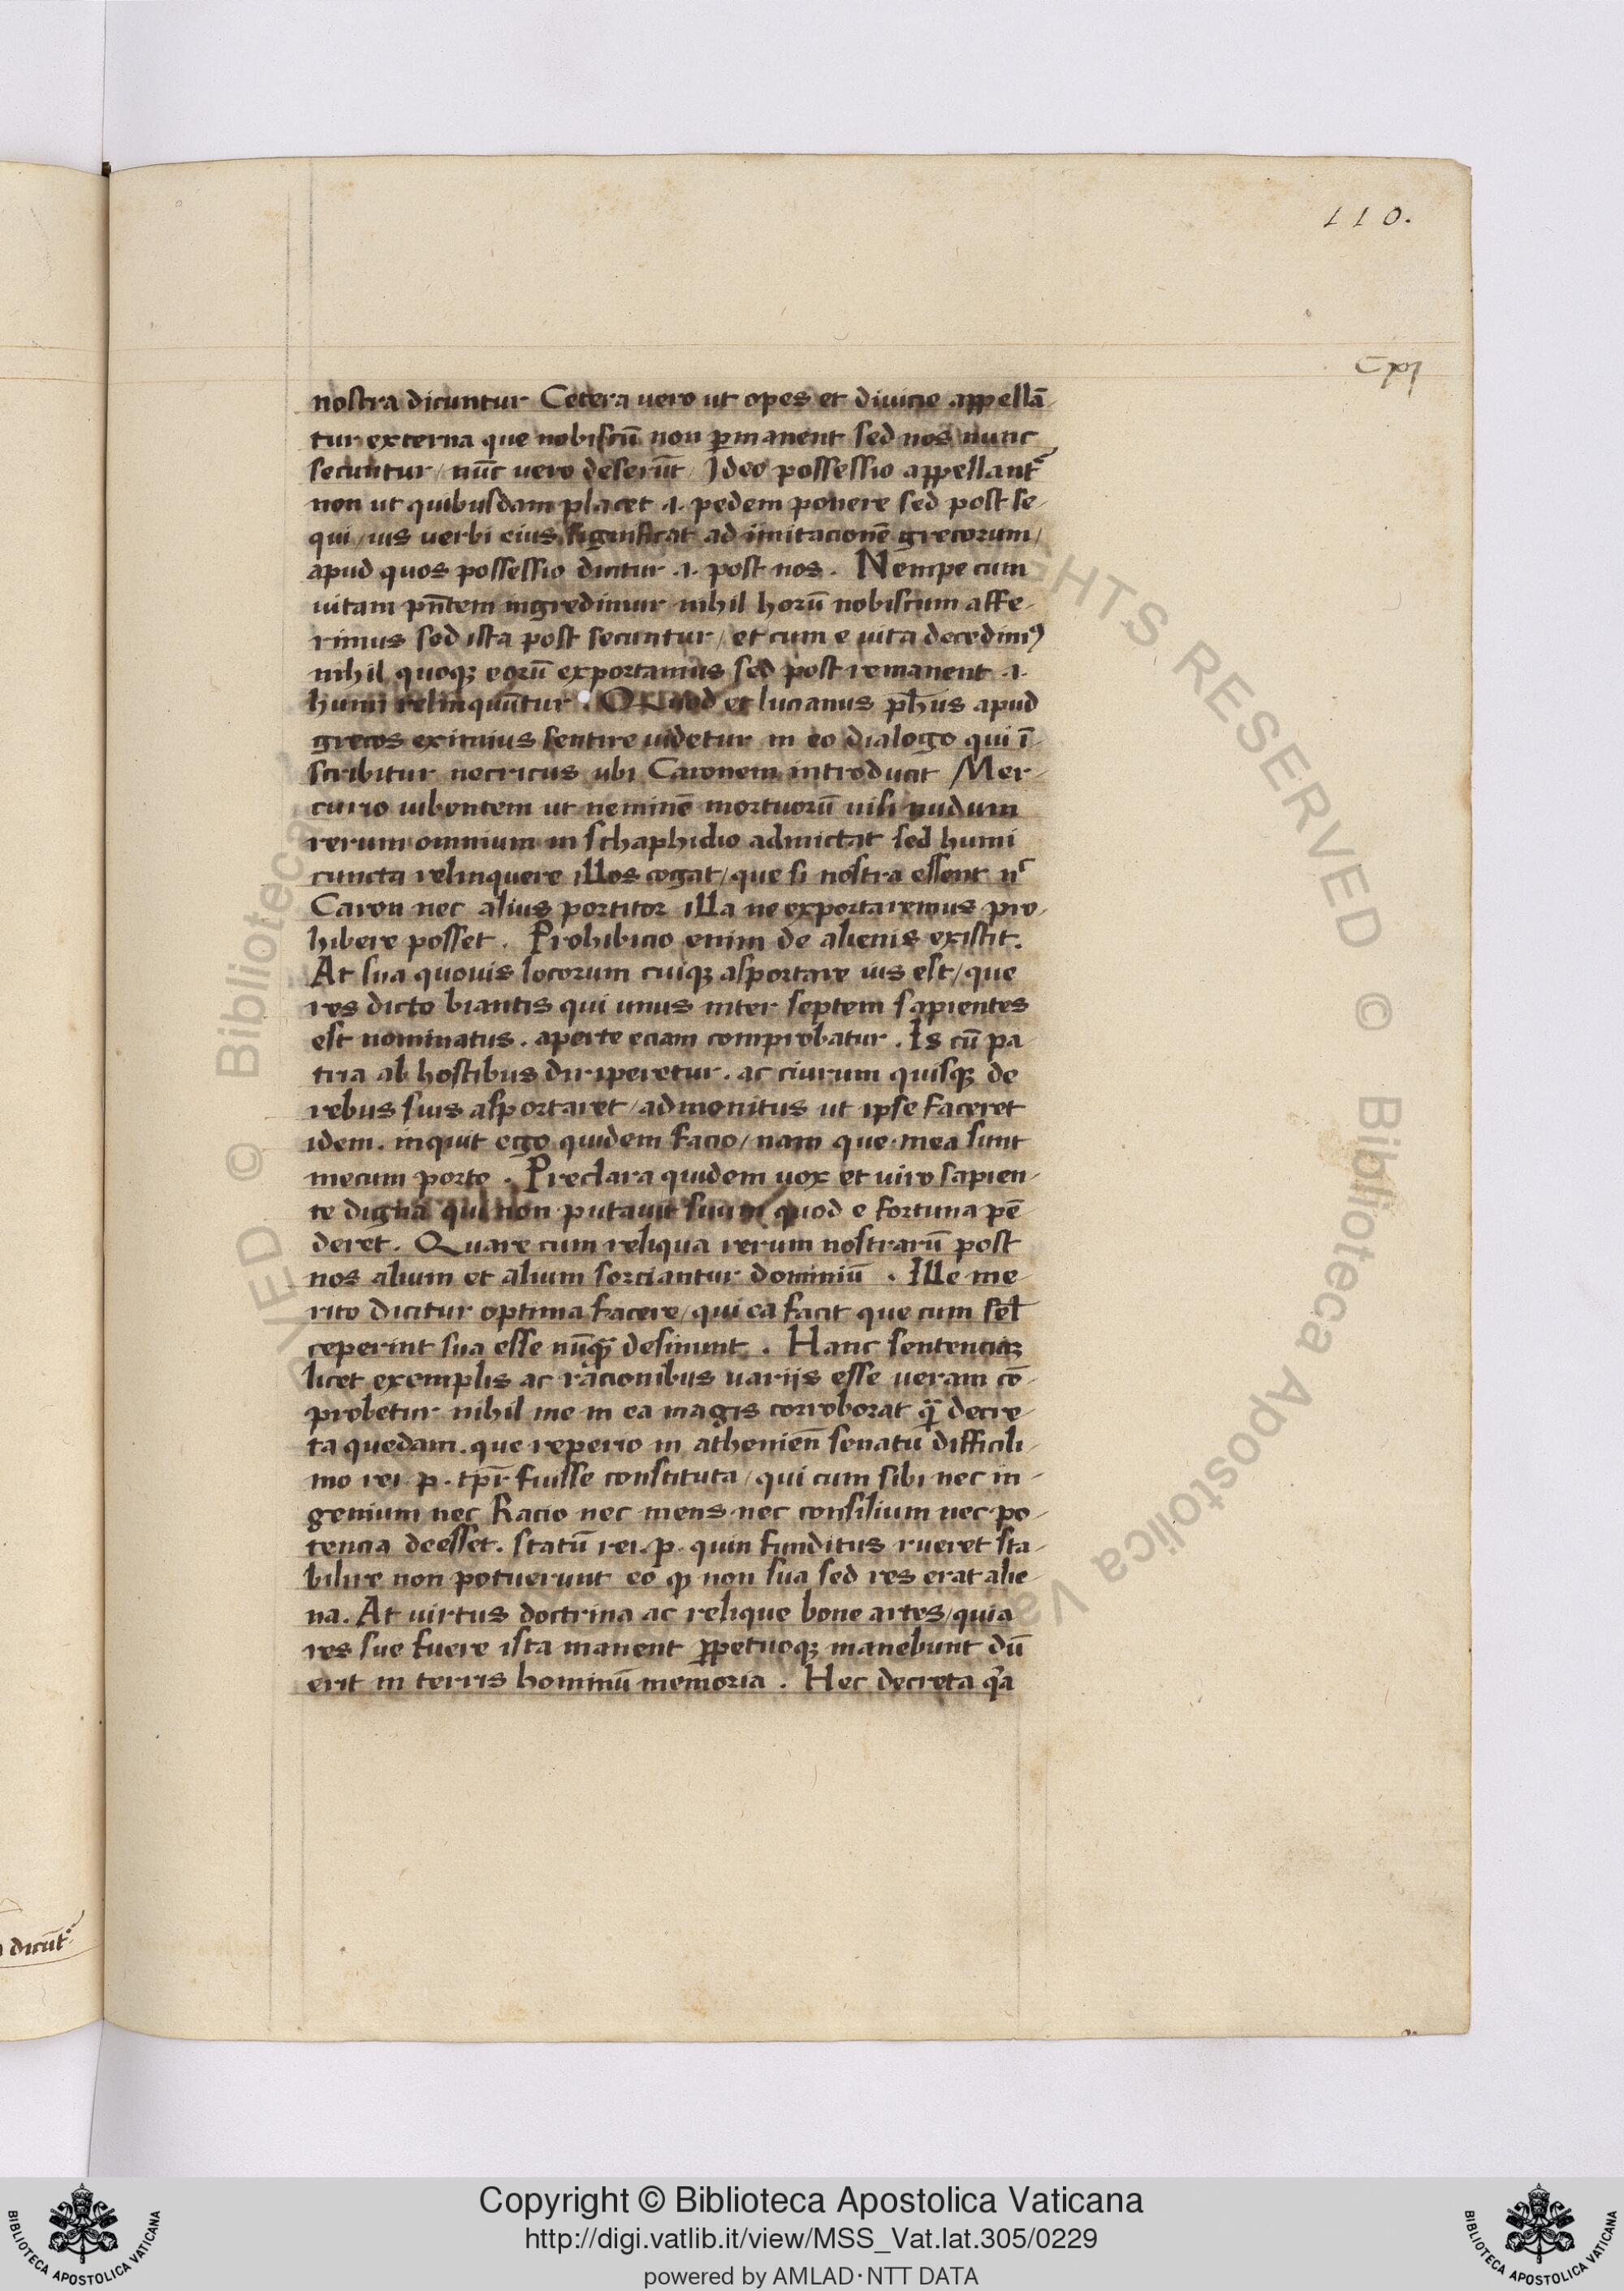 110.
nostra dicuntur Cetera uero ut opes et diuicie appellā-
tur externa que nobiscū non ꝑmanent sed nos nunc
secuntur / nūc uero deserūt / Ideo possessio appellant᷑
non ut quibusdam placet .i. pedem ponere sed post se-
qui / ius uerbi eius significat ad imitacionē grecorum /
apud quos possessio dicitur .i. post nos . Nempe cum
uitam pñtem ingredimur nihil horū nobiscum affe-
rimus sed ista post secuntur / et cum e uita decedimꝰ
nihil quoqꝫ eorū exportamus sed post remanent .i.
humi relinquūtur . Quod et lucianus ph̄us apud
grecos eximius sentire uidetur in eo dialogo qui ī-
scribitur necricus ubi Caronem introducit Mer-
curio iubentem ut neminē mortuorū nisi nudum
rerum omnium in schaphidio admictat sed humi
cuncta relinquere illos cogat / que si nostra essent nͨ
Caron nec alius portitor illa ne exportaremus pro-
hibere posset . Prohibicio enim de alienis existit .
At sua quouis locorum cuiqꝫ asportare ius est / que
res dicto biantis qui unus inter septem sapientes
est nominatus . aperte eciam comprobatur . Is cū pa
tria ab hostibus diriperetur . ac ciuium quisqꝫ de
rebus suis asportaret / admonitus ut ipse faceret
idem . inquit ego quidem facio / nam que mea sunt
mecum porto . Preclara quidem uox et uiro sapien-
te digna qui non putauit suum quod e fortuna pē
deret . Quare cum reliqua rerum nostrarū post
nos alium et alium sorciantur dominiū . Ille me-
rito dicitur optima facere / qui ea facit que cum sel̄
ceperint sua esse nūqꝫ desinunt . Hanc sentenciaꝫ
licet exemplis ac racionibus uariis esse ueram cō-
probetur nihil me in ea magis corroborat q̄ decre-
ta quedam . que reperio in athenien̄ senatu difficili-
mo rei . p . tpr̄ fuisse constituta / qui cum sibi nec in-
genium nec Racio nec mens nec consilium nec po-
tencia deesset . statū rei . p . quin funditus rueret sta-
bilire non potuerunt eo ꝙ non sua sed res erat alie-
na . At uirtus doctrina ac relique bone artes / quia
res sue fuere ista manent ꝑpetuoqꝫ manebunt dū
erit in terris hominū memoria . Hec decreta qͣa
dicūt᷑
Copyright © Biblioteca Apostolica Vaticana
http://digi.vatlib.it/view/MSS_Vat.lat.305/0229
powered by AMLAD·NTT DATA
BIBLIOTECA APOSTOLICA VATICANA
BIBLIOTECA APOSTOLICA VATICANA